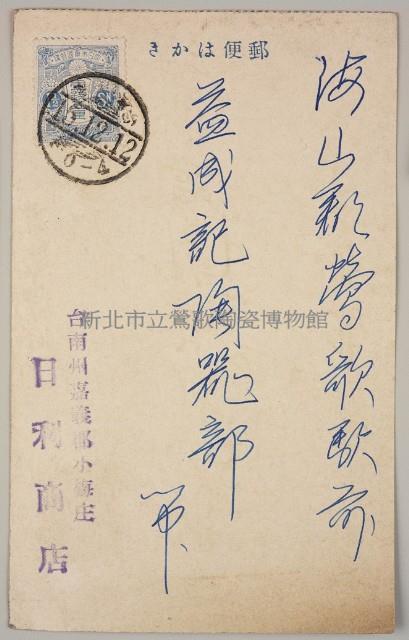 郵便はかき
海山郡鶯歌駅前
益成記陶器部
台南州嘉義郡小梅庄
日利商店
12.12
0-4
新北市立鶯歌陶瓷博物館